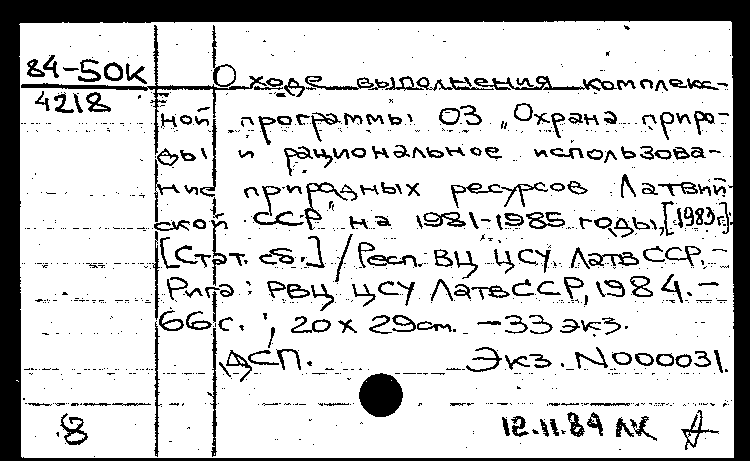 84-50К О ходе выполнения комплекс-
4218 ной программы 03 „Охрана приро-
ды и рациональное использова-
ние природных ресурсов Латвий-
ской ССР" на 1981-1985 годы, [1983 г.]:
[Стат. сб.] / Респ. ВЦ ЦСУ ЛатвССР. -
Рига: РВЦ ЦСУ ЛатвССР, 1984. -
66 с. ; 20 x 29 cm. - 33 экз.
ДСП. Экз. N000031.
8 12.11.84 ЛК